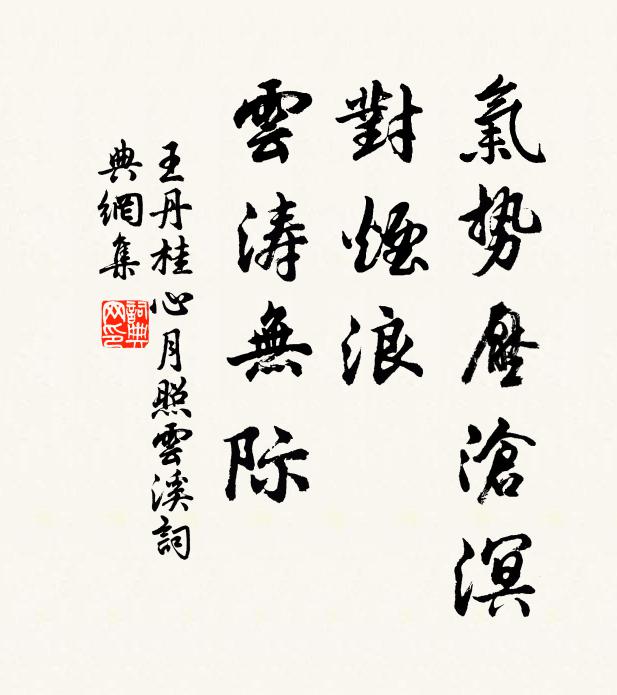 氣势壓滄溟
對煙浪
雲涛無际
王丹桂心月照雲溪詞
典網集
詞典网印